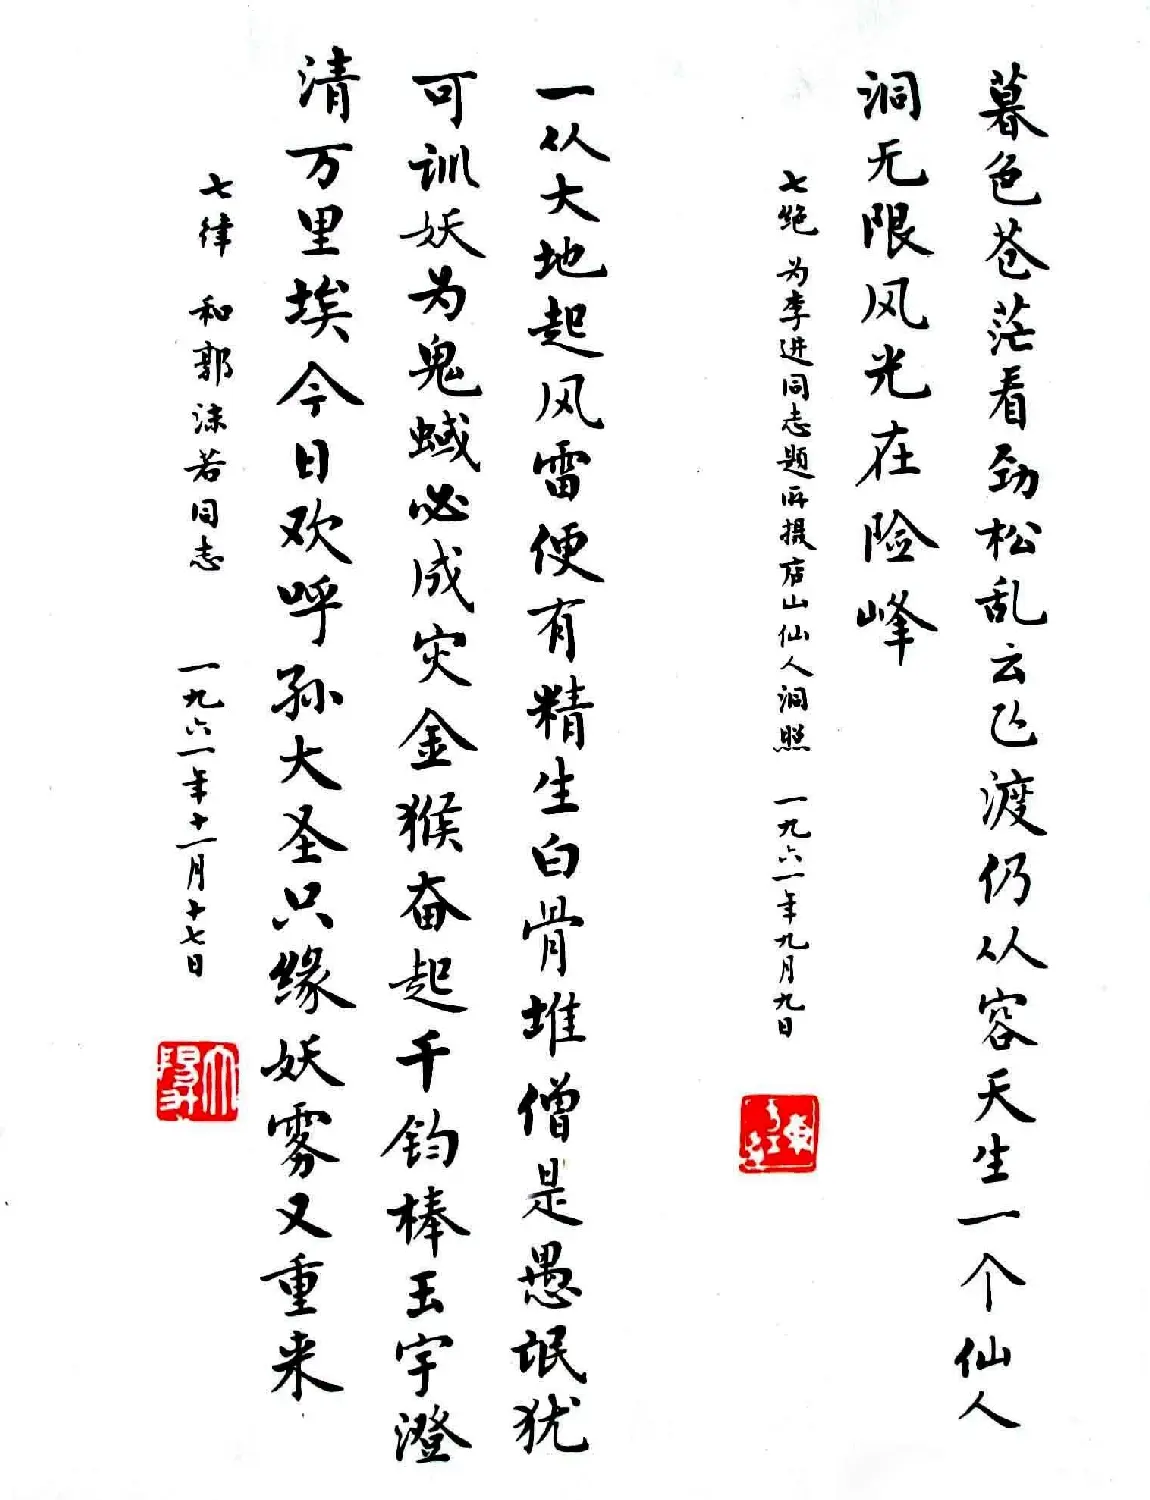 暮色苍茫看劲松乱云飞渡仍从容天生一个仙人
洞无限风光在险峰
七绝 为李进同志题所摄庐山仙人洞照 一九六一年九月九日
一从大地起风雷便有精生白骨堆僧是愚氓犹
可训妖为鬼蜮必成灾金猴奋起千钧棒玉宇澄
清万里埃今日欢呼孙大圣只缘妖雾又重来
七律 和郭沫若同志 一九六一年十一月十七日